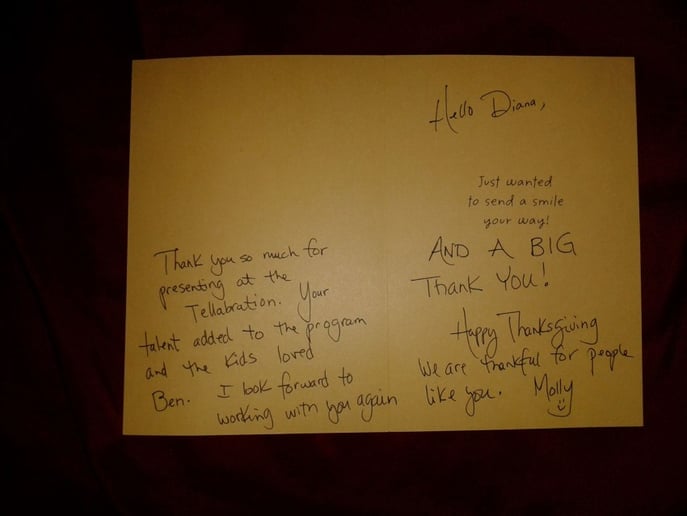 Hello Diana,
Just wanted
to send a smile
your way!
AND A BIG
THANK YOU!
Happy Thanksgiving
We are thankful for people
like you. Molly
Thank you so much for
presenting at the
Tellabration. Your
talent added to the program
and the kids loved
Ben. I look forward to
working with you again